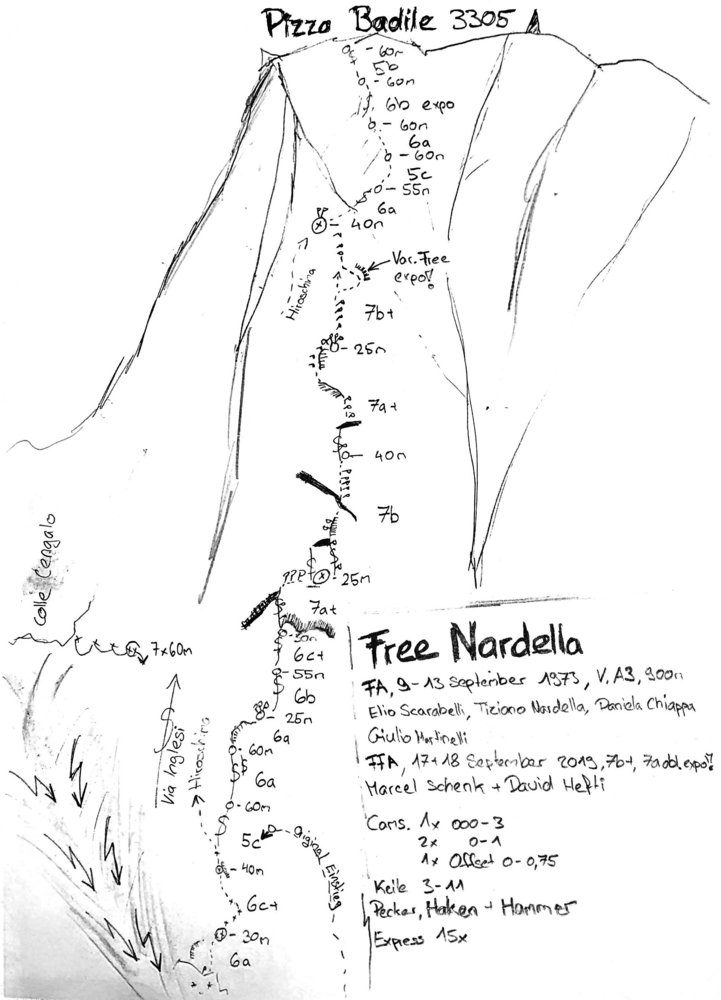 Pizzo Badile 3305
60m
5b
60m
6b expo
60m
6a
60m
5c
55m
6a
40m
Hiroschira
Var. Free
expo!
7b+
25m
7a+
40m
7b
25m
7a+
30m
6c+
55m
6b
25m
6a
60m
6a
60m
5c
Original Einstieg
40m
6c+
30m
6a
Colle Cengalo
7x60m
Via Inglesi
Hiroschira
Free Nardella
FA, 9-13 September 1973, V. A3, 900m
Elio Scarabelli, Tiziano Nardella, Daniela Chiappa
Giulio Martinelli
FFA, 17+18 September 2019, 7b+, 7a obl. expo!
Marcel Schenk + David Hefti
Cams. 1x 000-3
2x 0-1
1x Offset 0-0,75
Keile 3-11
Pecker, Haken + Hammer
Express 15x